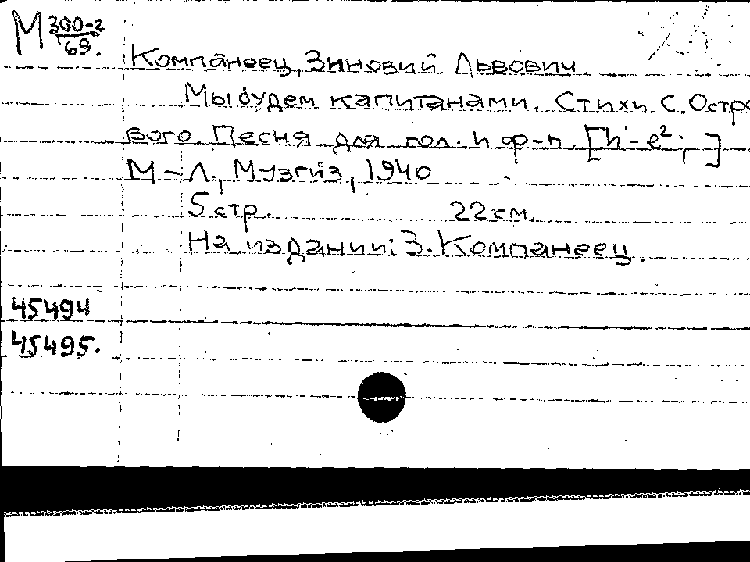 М 300-2
69.
Компанеец, Зиновий Львович
Мы будем капитанами. Стихи С. Остро
вого. Песня для гол. и ф-п. [h'-e²; ]
М-Л., Музгиз, 1940
5 стр. 22 см.
На издании: З. Компанеец.
45494
45495.